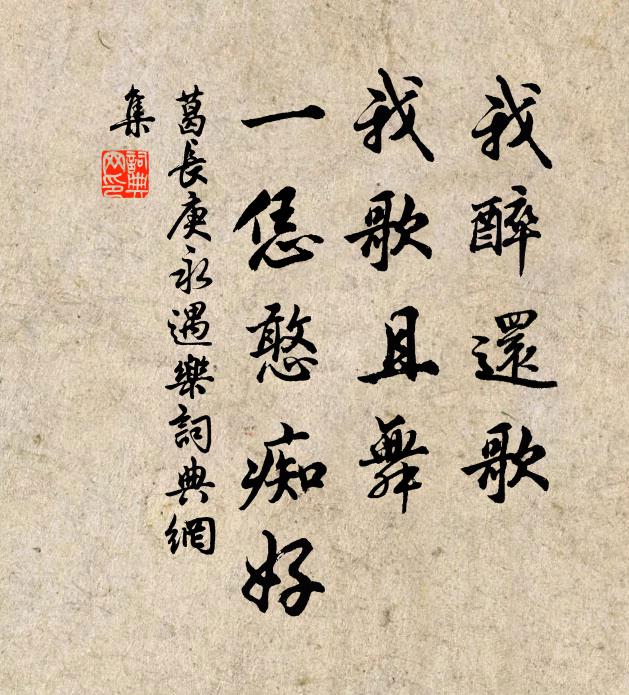 我醉還歌
我歌且舞
一恁憨痴好
葛長庚永遇樂詞典網
集
詞典網印